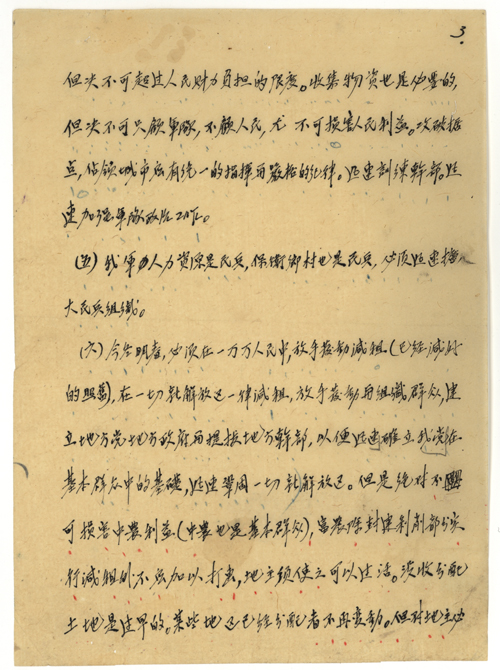 3.
但决不可超过人民财力负担的限度。收集物资也是必要的,
但决不可只顾军队,不顾人民,尤不可损害人民利益。攻破据
点,佔领城市应有统一的指挥与严格的纪律。迅速训练幹部。迅
速加强军队政治工作。
(五)我军人力资源是民兵,保卫乡村也是民兵,必须迅速扩
大民兵组织。
(六)今冬明春,必须在一万万人民中,放手发动减租(已经减好
的照旧),在一切新解放区一律减租,放手发动与组织群众,建
立地方党地方政府与提拔地方幹部,以便迅速确立我党在
基本群众中的基础,迅速巩固一切新解放区。但是绝对不
可损害中农利益(中农也是基本群众),富农除封建剥削部分实
行减租外不应加以打击,地主须使之可以过活。没收分配
土地是过早的。某些地区已经分配者不再变动。但对地主必